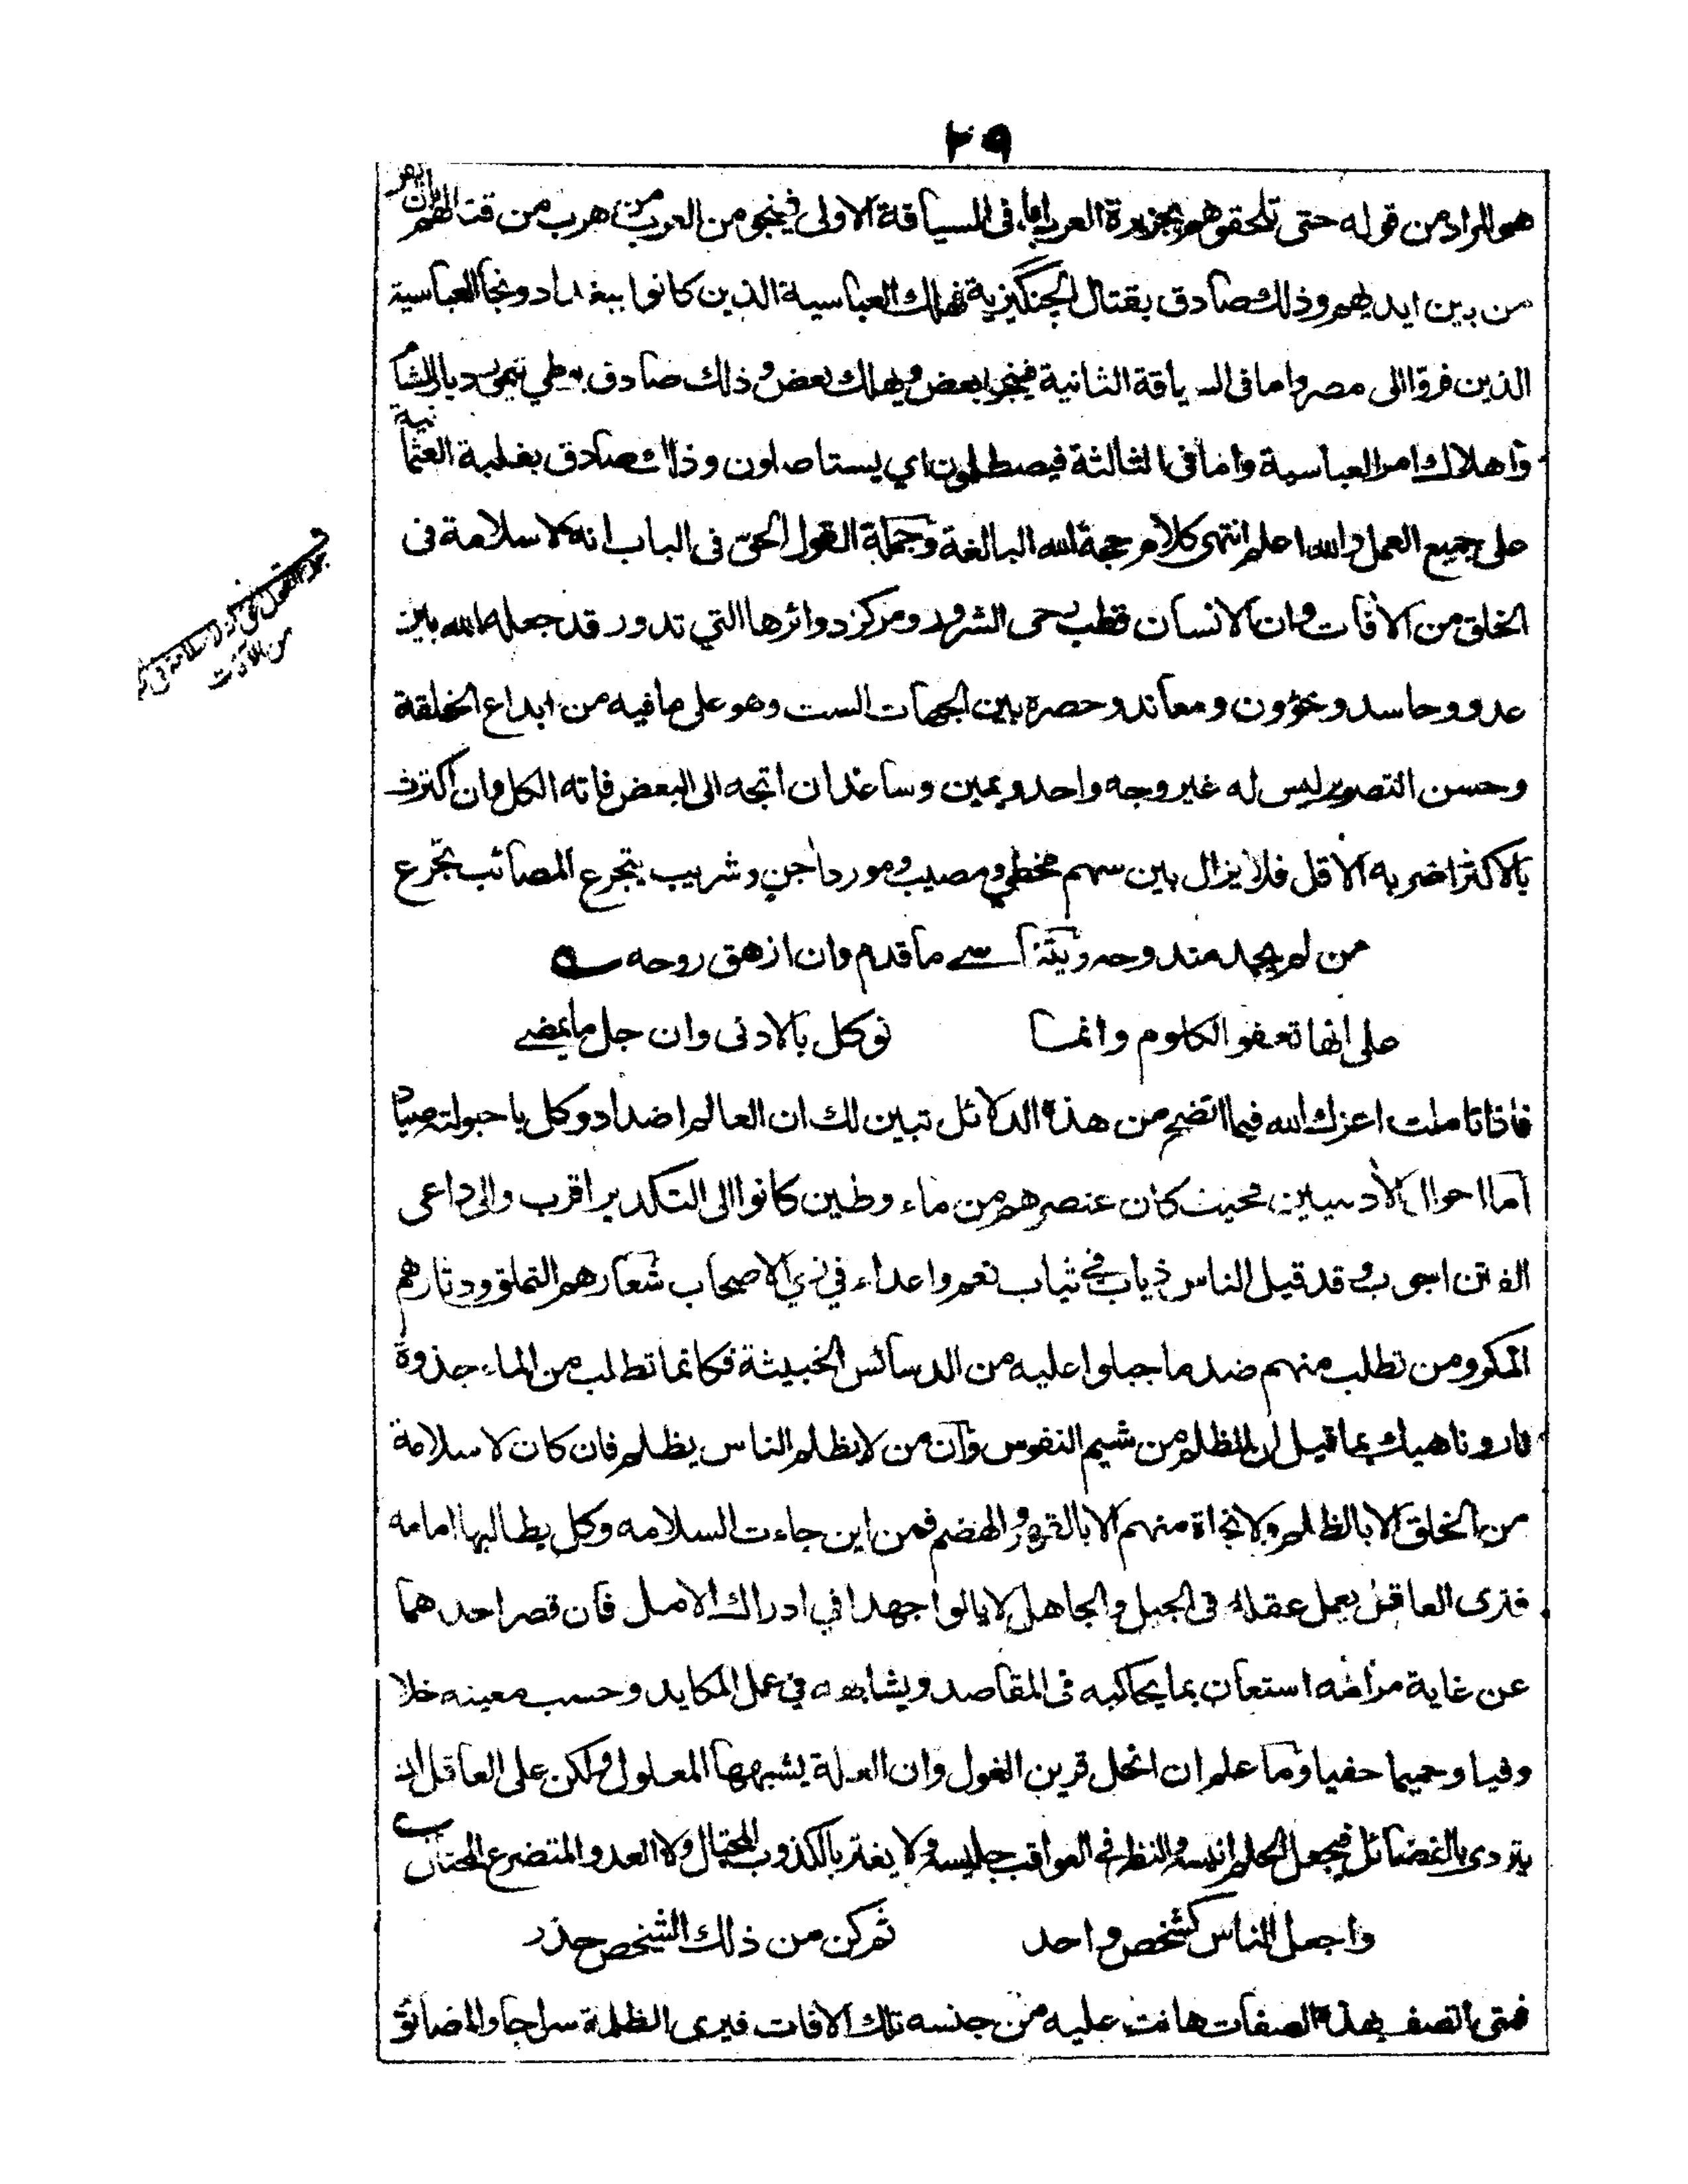 ٢٩
هو المراد من قوله حتى تلحقوهم بجزيرة العرب اما فى السياقة الاولى فينجو من العرب من هرب من قتالهم
من بين ايديهم وذلك صادق بقتال الچنگيزية فهلك العباسية الذين كانوا ببغداد ونجا العباسية
الذين فروا الى مصر واما فى السياقة الثانية فينجو بعض ويهلك بعض وذلك صادق بوطي تيمور ديار الشام
واهلاك امر العباسية واما فى الثالثة فيصطلمون اي يستاصلون وذلك صادق بغلبة العثمانية
على جميع العمل والله اعلم انتهى كلام حجة الله البالغة وجملة القول الحق فى الباب انه لا سلامة فى
الخلق من الآفات وان الانسان قطب رحى الشرور ومركز دوائرها التي تدور قد جعله الله بين
عدو وحاسد وخؤون ومعاند وحصره بين الجهات الست وهو على ما فيه من ابداع الخلقة
وحسن التصوير ليس له غير وجه واحد ويمين وساعد ان اتجه الى البعض فاته الكل وان اكترث
بالاكثر اضر به الاقل فلا يزال بين سهم مخطي ومصيب ومورد اجن وشريب يتجرع المصائب تجرع
من لم يجد مندوحه ما قدم وان ازهق روحه
على انها تعفو الكلوم وانما نوكل بالادنى وان جل ما يمضے
فاذا تاملت اعزك الله فيما اتضح من هذه الدلائل تبين لك ان العالم اضداد وكل يا حبولته صياد
اما احوال الأدميين فحيث كان عنصرهم من ماء وطين كانوا الى التكدير اقرب والى داعى
الفتن اجوب وقد قيل الناس ذياب فے ثياب نعم واعداء في زي الاصحاب شعارهم التملق ودثارهم
المكر ومن تطلب منهم ضد ما جبلوا عليه من الدسائس الخبيثة فكانما تطلب من الماء جذوة
نار وناهيك بما قيل ان الظلم من شيم النفوس وان من لا يظلم الناس يظلم فان كان لا سلامة
من الخلق الا بالظلم ولا نجاة منهم الا بالقهر والهضم فمن اين جاءت السلامه وكل يطالبها امامه
فترى العاقل يعمل عقله فى الحيل والجاهل لا يالوا جهدا في ادراك الامل فان قصر احدهما
عن غاية مرامه استعان بما يحاكيه فى المقاصد ويشابهه في عمل المكايد وحسب معينه خلا
وفيا وحميما حفيا وما علم ان الخل قرين الغول وان العلة يشبهها المعلول ولكن على العاقل ان
يتردى بالفضائل فيجعل الحلم انيسه والنظر فے العواقب جليسه ولا يغتر بالكذوب المحتال ولا العدو المتضرع المحتال
واجعل الناس كشخص واحد ثم كن من ذلك الشخص حذر
فمتى اتصف بهذه الصفات هانت عليه من جنسه تلك الافات فيرى الظلمة سراجا والمضائق